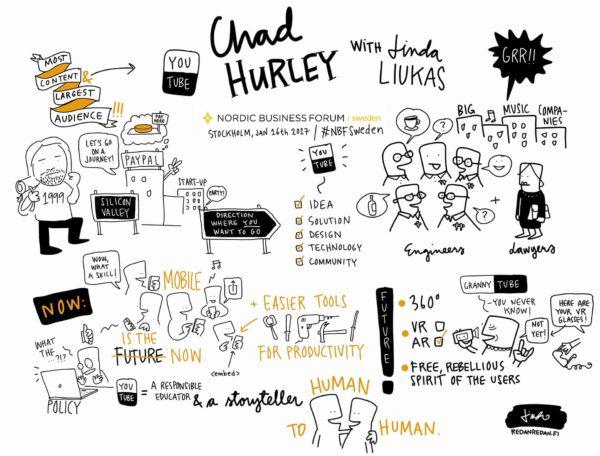 MOST
CONTENT &
LARGEST
AUDIENCE !!!
YOU
TUBE
Chad
HURLEY
WITH Linda
LIUKAS
GRR!!
NORDIC BUSINESS FORUM / sweden
STOCKHOLM, JAN 26th 2017 / #NBFSweden
BIG MUSIC COMPA-
NIES
LET'S GO
ON A
JOURNEY!
1999
PAY
HERE
PAYPAL
SILICON
VALLEY
START-UP
PARTY!
DIRECTION
WHERE YOU
WANT TO GO
YOU
TUBE
IDEA
SOLUTION
DESIGN
TECHNOLOGY
COMMUNITY
?
+
Engineers
Lawyers
NOW:
WOW,
WHAT
A SKILL!
MOBILE
IS THE
FUTURE NOW.
<embed>
+ EASIER TOOLS
FOR PRODUCTIVITY
WHAT
THE
...?!?
POLICY
YOU
TUBE
= A RESPONSIBLE
EDUCATOR
& a storyteller
HUMAN
TO HUMAN.
FUTURE!
360°
VR
AR
FREE, REBELLIOUS
SPIRIT OF THE USERS
GRANNY TUBE
-YOU NEVER
KNOW!
NOT
YET!
HERE ARE
YOUR VR
GLASSES!
REDANREDAN.FI